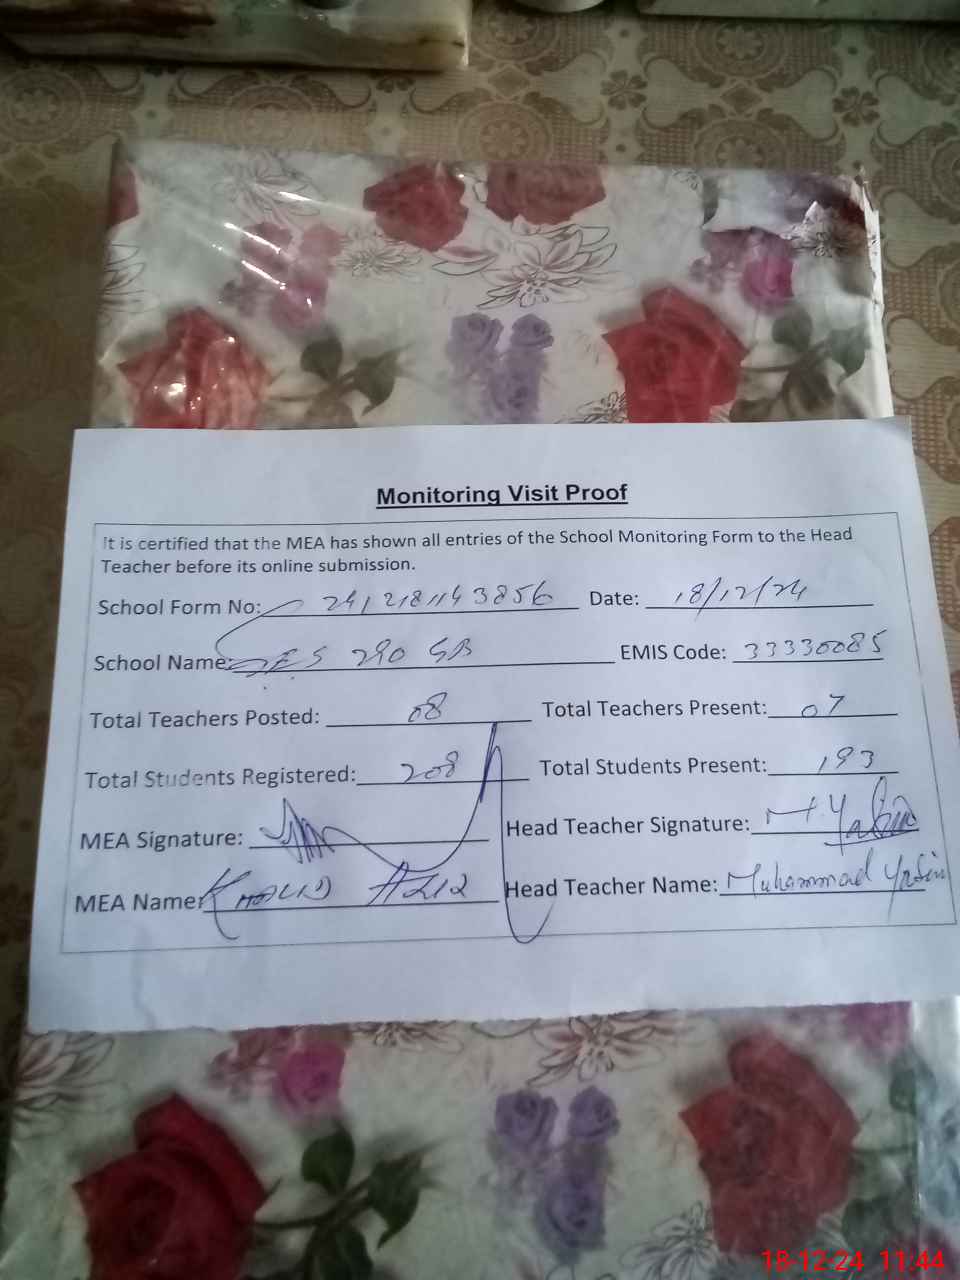 Monitoring Visit Proof
It is certified that the MEA has shown all entries of the School Monitoring Form to the Head
Teacher before its online submission.
School Form No: 2412181143856 Date: 18/12/24
School Name: GES 290 GB EMIS Code: 33330085
Total Teachers Posted: 08 Total Teachers Present: 07
Total Students Registered: 208 Total Students Present: 193
MEA Signature: Head Teacher Signature: M.Yasin
MEA Name: KHALID AZIZ Head Teacher Name: Muhammad Yasin
18-12-24 11:44